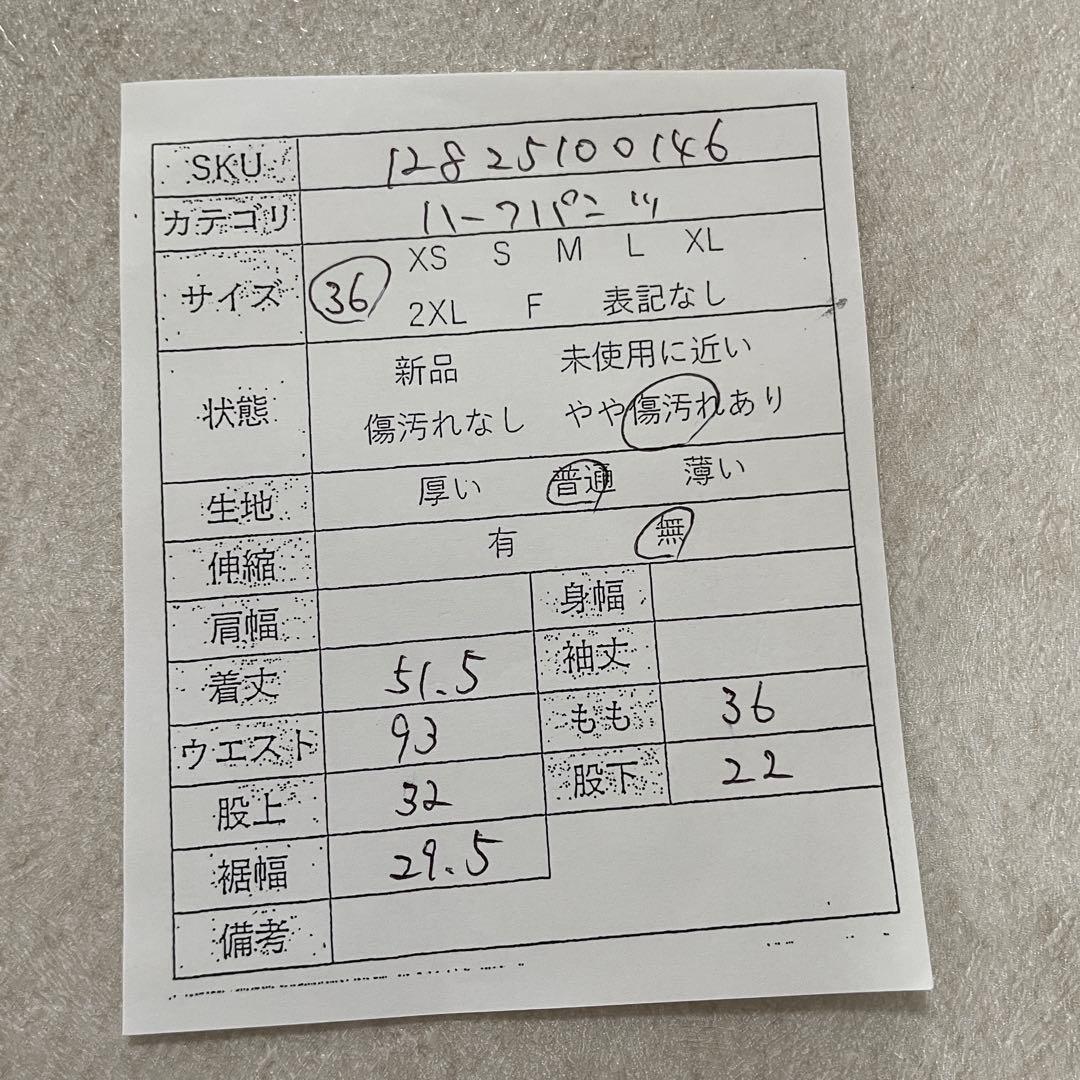 SKU 12825100146
カテゴリ ハーフパンツ
サイズ 36 XS S M L XL
2XL F 表記なし
状態 新品 未使用に近い
傷汚れなし やや傷汚れあり
生地 厚い 普通 薄い
伸縮 有 無
肩幅 身幅
着丈 51.5 袖丈
ウエスト 93 もも 36
股上 32 股下 22
裾幅 29.5
備考